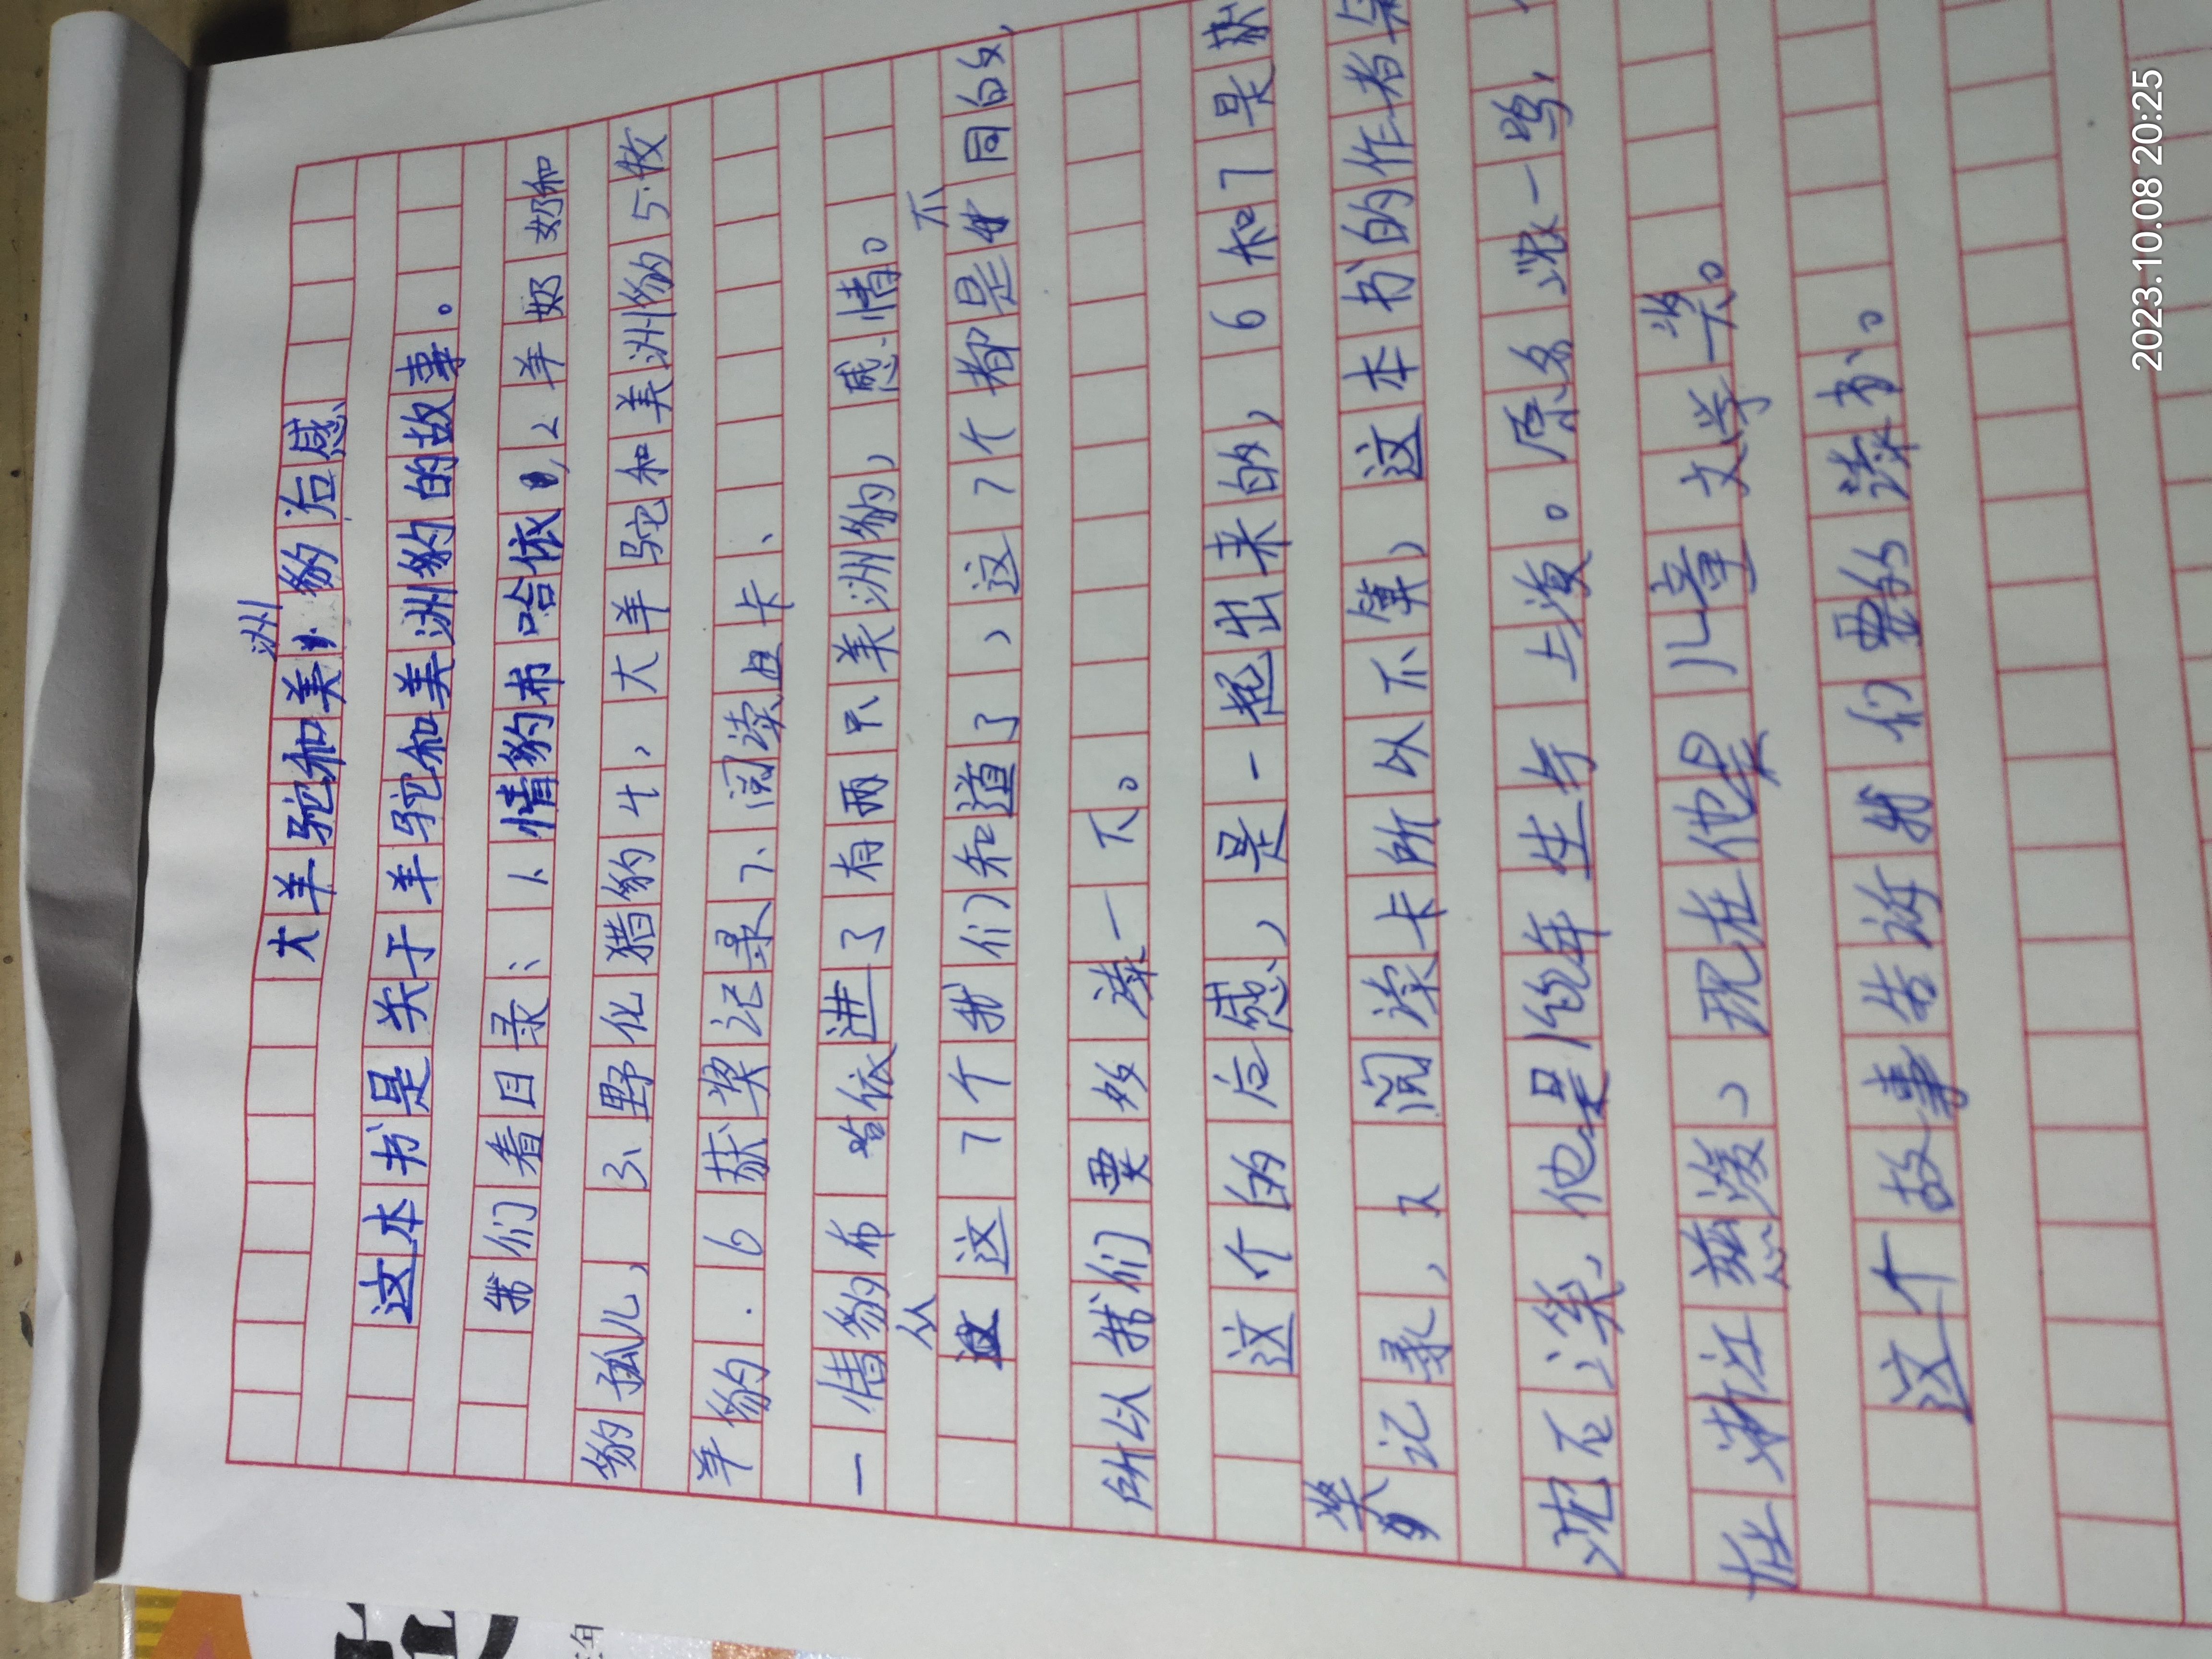 大羊驼和美洲豹后感
这本书是关于羊驼和美洲豹的故事。
我们看目录：1、情豹布哈依，2羊奶奶和
豹孤儿，3、野化猎豹4，大羊驼和美洲豹5.牧
羊豹．6获奖记录7、阅读卡、
一情豹布哈依进了有两只美洲豹，感情。
从这7个我们知道了，这7个都是不同的，
所以我们要多读一下。
这个的后感，是一起出来的，6和7是获
奖记录，又阅读卡所以不算，这本书的作者是
沈石溪，他是 年生于上海。原名沈一鸣，
在浙江慈溪，现在他是儿童文学奖。
这个故事告诉我们要多读书。
2023.10.08 20:25